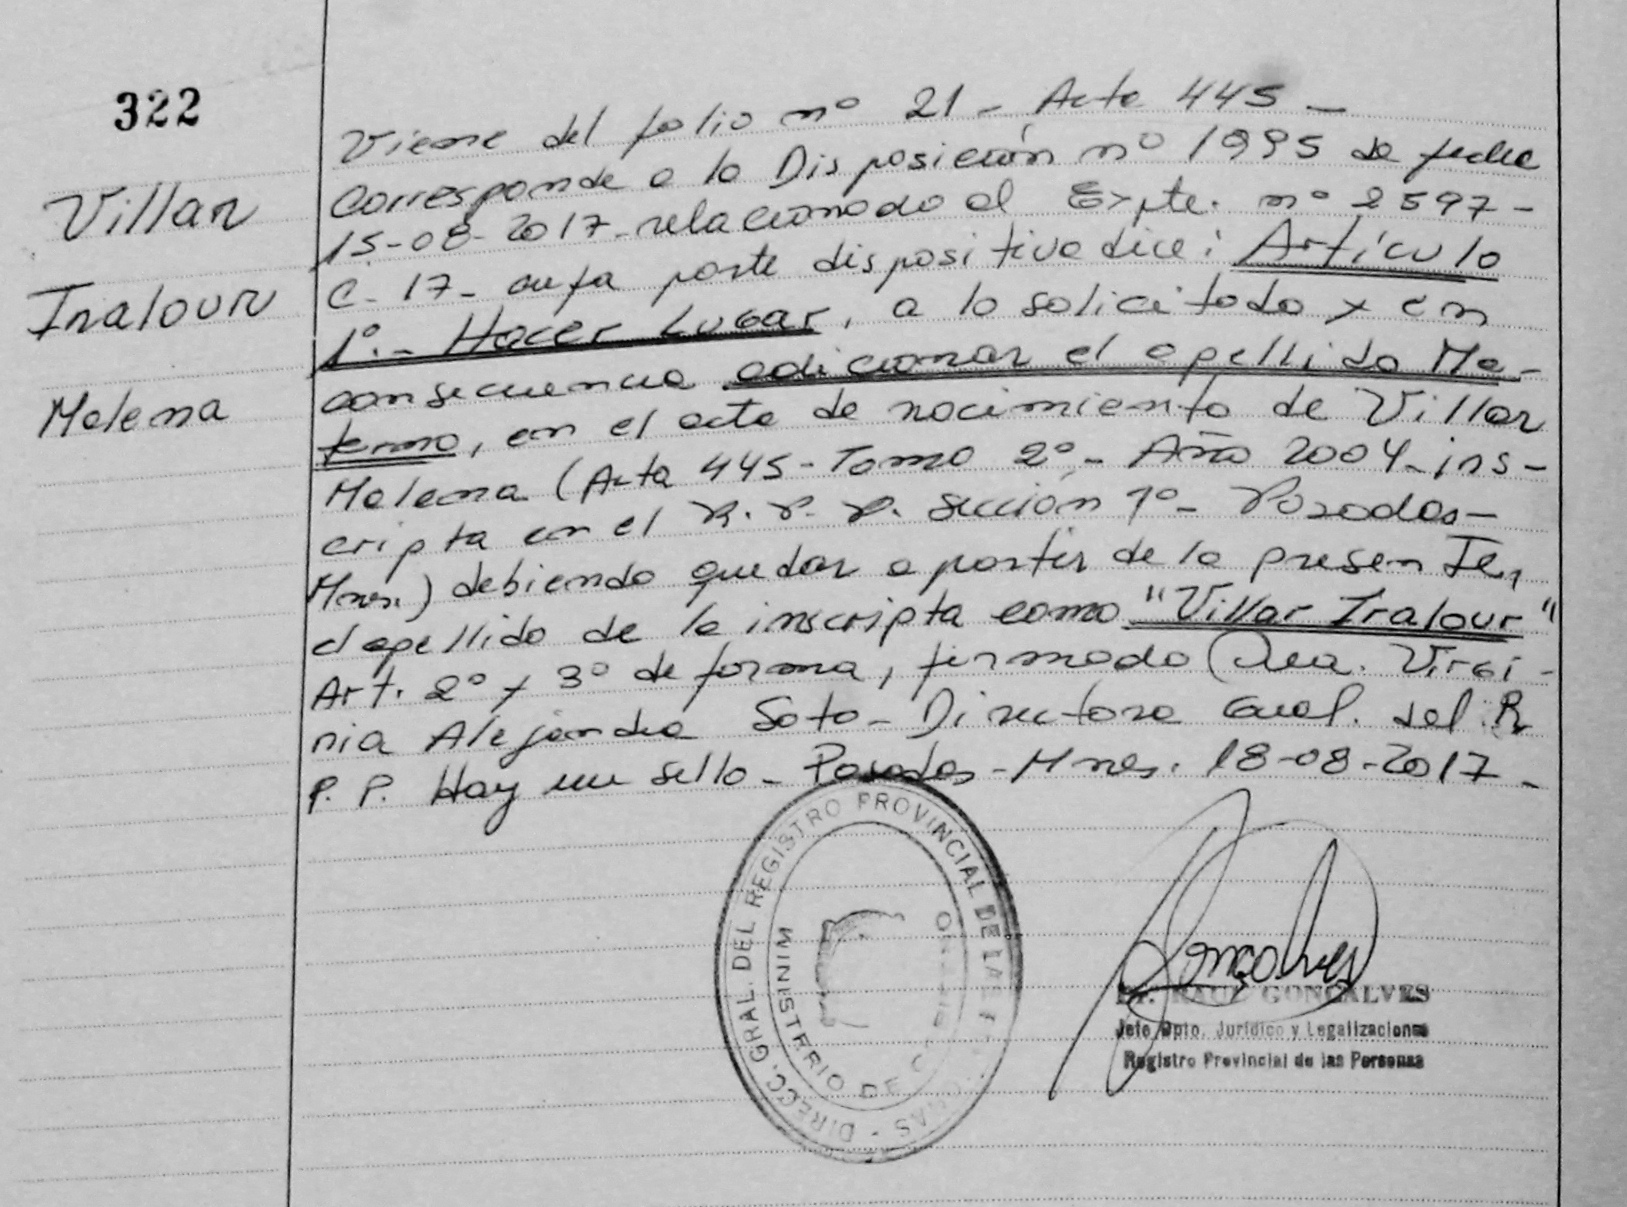 322
Villar
Iralour
Malena
Viene del folio nº 21 - Acta 445 -
Corresponde a la Disposición nº 1995 de fecha
15-08-2017- relacionado al Expte. nº 2597-
C-17- cuya parte dispositiva dice: Artículo
1º.- Hacer Lugar, a lo solicitado y en
consecuencia adicionar el apellido Ma-
terno, en el acta de nacimiento de Villar
Malena (Acta 445- Tomo 2º- Año 2004- ins-
cripta en el R. P. P. Sección 1º- Posadas-
Mnes.) debiendo quedar a partir de la presente,
el apellido de la inscripta como "Villar Iralour"
Art. 2º y 3º de forma, firmado Dra. Virgi-
nia Alejandra Soto- Directora Gral. del R
P. P. Hay un sello - Posadas - Mnes. 18-08-2017-
DIRECC. GRAL. DEL REGISTRO PROVINCIAL DE LAS
MINISTERIO DE
Gonçalves
Dr. RAUL GONÇALVES
Jefe Dpto. Jurídico y Legalizaciones
Registro Provincial de las Personas